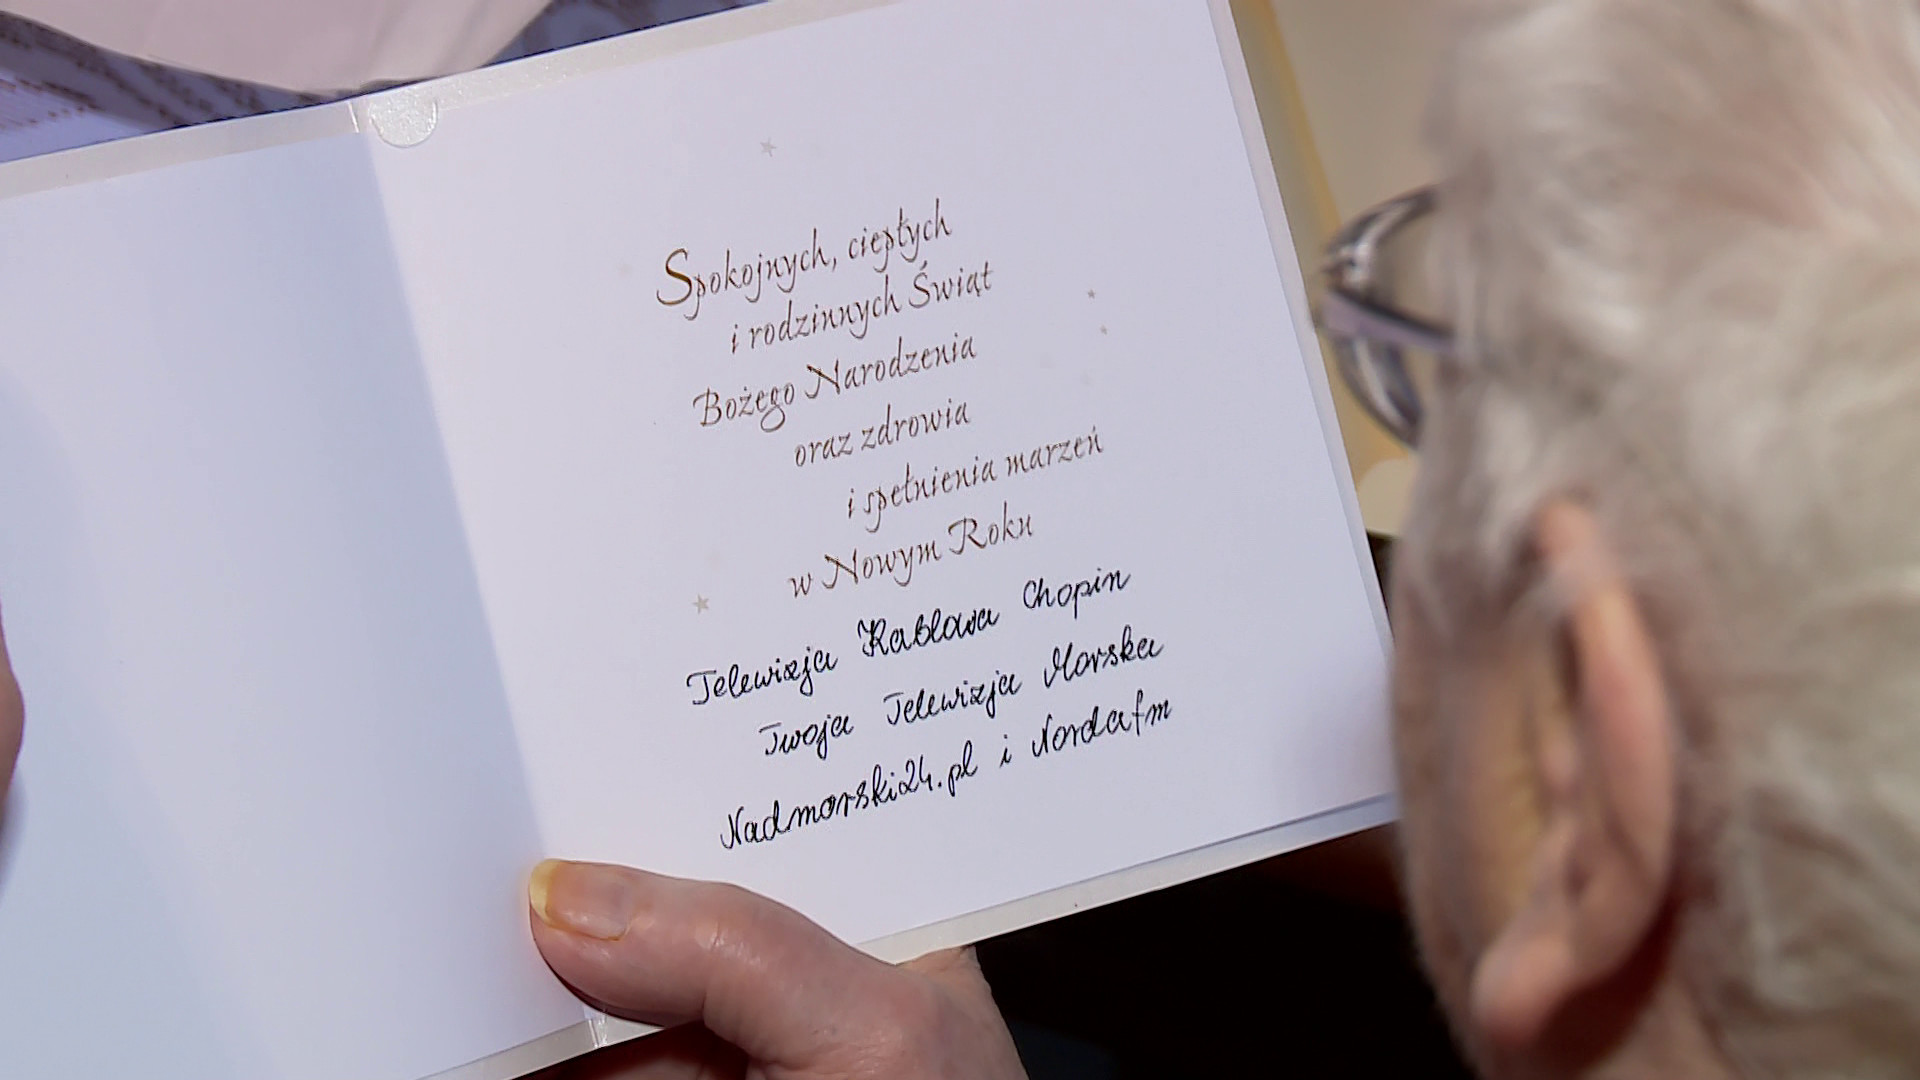 Spokojnych, ciepłych
i rodzinnych Świąt
Bożego Narodzenia
oraz zdrowia
i spełnienia marzeń
w Nowym Roku
Telewizja Kablowa Chopin
Twoja Telewizja Morska
Nadmorski24.pl i Nordafm